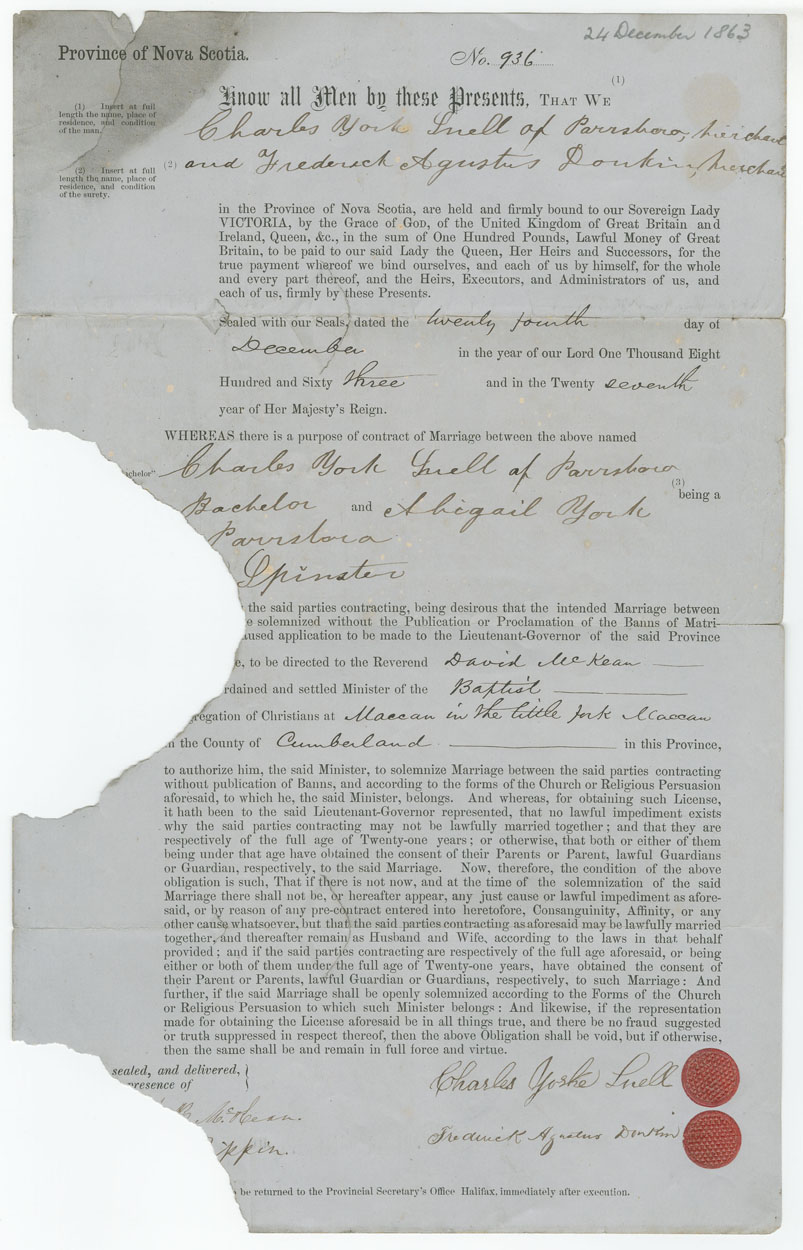 24 December 1863
Province of Nova Scotia.
No. 936
(1)
Know all Men by these Presents, THAT WE
(1) Insert at full
length the name, place of
residence, and condition
of the man.
Charles York Snell of Parrsboro, Merchant
(2) and Frederick Agustus Donkin, Merchant
(2) Insert at full
length the name, place of
residence, and condition
of the surety.
in the Province of Nova Scotia, are held and firmly bound to our Sovereign Lady
VICTORIA, by the Grace of GOD, of the United Kingdom of Great Britain and
Ireland, Queen, &c., in the sum of One Hundred Pounds, Lawful Money of Great
Britain, to be paid to our said Lady the Queen, Her Heirs and Successors, for the
true payment whereof we bind ourselves, and each of us by himself, for the whole
and every part thereof, and the Heirs, Executors, and Administrators of us, and
each of us, firmly by these Presents.
Sealed with our Seals, dated the twenty fourth day of
December in the year of our Lord One Thousand Eight
Hundred and Sixty three and in the Twenty seventh
year of Her Majesty's Reign.
WHEREAS there is a purpose of contract of Marriage between the above named
achelor" Charles York Snell of Parrsboro
(3)
Bachelor and Abigail York being a
Parrsboro
Spinster
the said parties contracting, being desirous that the intended Marriage between
e solemnized without the Publication or Proclamation of the Banns of Matri-
aused application to be made to the Lieutenant-Governor of the said Province
e, to be directed to the Reverend David McKean
rdained and settled Minister of the Baptist
gregation of Christians at Maccan in the little fork Maccan
n the County of Cumberland in this Province,
to authorize him, the said Minister, to solemnize Marriage between the said parties contracting
without publication of Banns, and according to the forms of the Church or Religious Persuasion
aforesaid, to which he, the said Minister, belongs. And whereas, for obtaining such License,
it hath been to the said Lieutenant-Governor represented, that no lawful impediment exists
why the said parties contracting may not be lawfully married together; and that they are
respectively of the full age of Twenty-one years; or otherwise, that both or either of them
being under that age have obtained the consent of their Parents or Parent, lawful Guardians
or Guardian, respectively, to the said Marriage. Now, therefore, the condition of the above
obligation is such, That if there is not now, and at the time of the solemnization of the said
Marriage there shall not be, or hereafter appear, any just cause or lawful impediment as afore-
said, or by reason of any pre-contract entered into heretofore, Consanguinity, Affinity, or any
other cause whatsoever, but that the said parties contracting as aforesaid may be lawfully married
together, and thereafter remain as Husband and Wife, according to the laws in that behalf
provided; and if the said parties contracting are respectively of the full age aforesaid, or being
either or both of them under the full age of Twenty-one years, have obtained the consent of
their Parent or Parents, lawful Guardian or Guardians, respectively, to such Marriage: And
further, if the said Marriage shall be openly solemnized according to the Forms of the Church
or Religious Persuasion to which such Minister belongs: And likewise, if the representation
made for obtaining the License aforesaid be in all things true, and there be no fraud suggested
or truth suppressed in respect thereof, then the above Obligation shall be void, but if otherwise,
then the same shall be and remain in full force and virtue.
sealed, and delivered,
presence of
Charles Yorke Snell
McKean.
Frederick Agustus Donkin
ippin.
be returned to the Provincial Secretary's Office Halifax, immediately after execution.